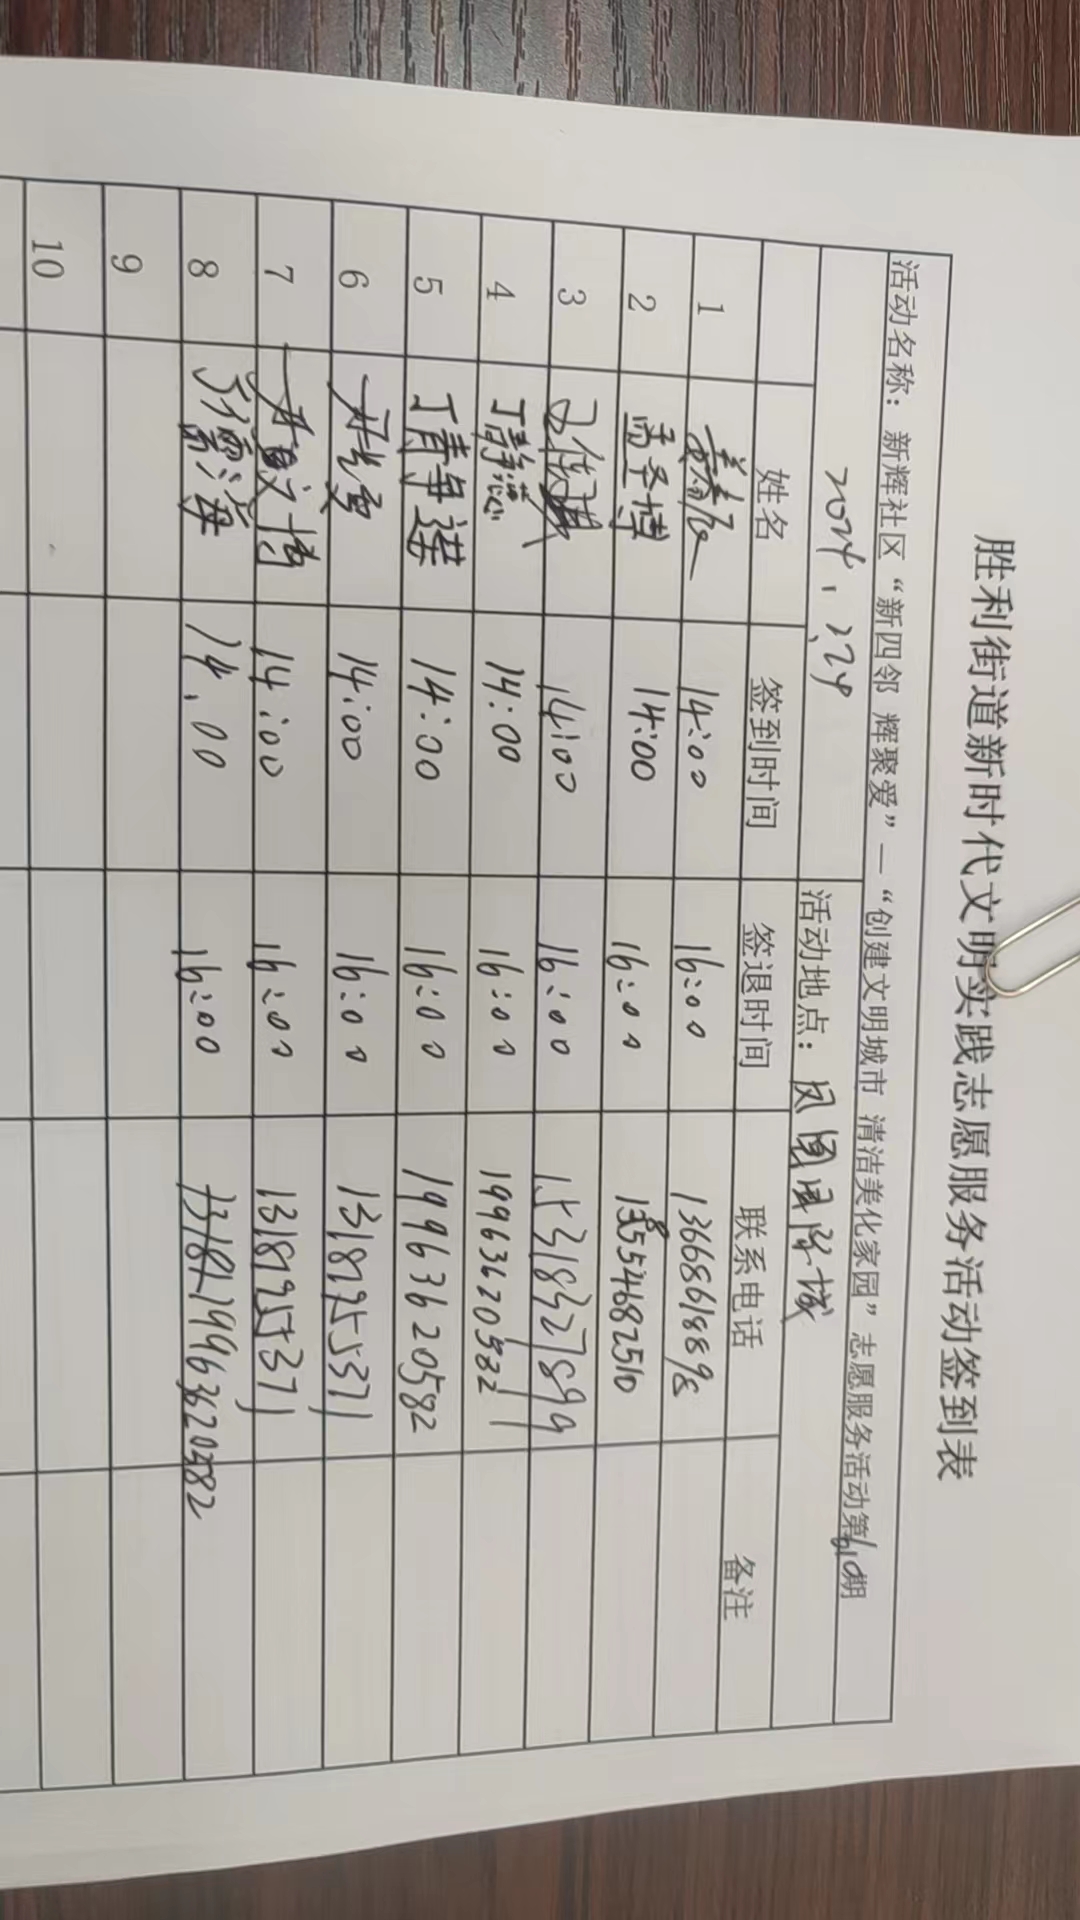 胜利街道新时代文明实践志愿服务活动签到表
活动名称：新辉社区“新四邻 辉聚爱”—“创建文明城市 清洁美化家园”志愿服务活动第10期
2024.2.29 活动地点：凤凰城
姓名 签到时间 签退时间 联系电话 备注
1 14:00 16:00 13668618898
2 孟圣博 14:00 16:00 15554682510
3 14:00 16:00 15318327899
4 丁静 14:00 16:00 19963620582
5 丁青 14:00 16:00 19963620582
6 14:00 16:00 13181795371
7 文博 14:00 16:00 13181795371
8 海 14.00 16:00 19963620582
9
10